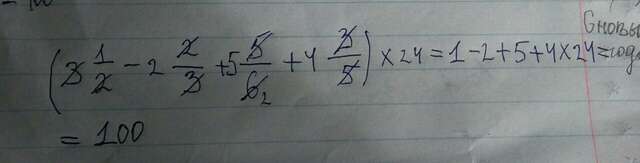 С новы
(3 1/2 - 2 2/3 + 5 5/6 2 + 4 3/5) × 24 = 1 - 2 + 5 + 4 × 24 =
= 100